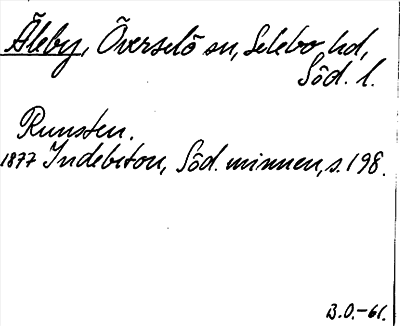 Äleby, Överselö sn, Selebo hd,
Söd. l.
Runsten.
1877 Indebetou, Söd. minnen, s. 198.
B.O.-61.